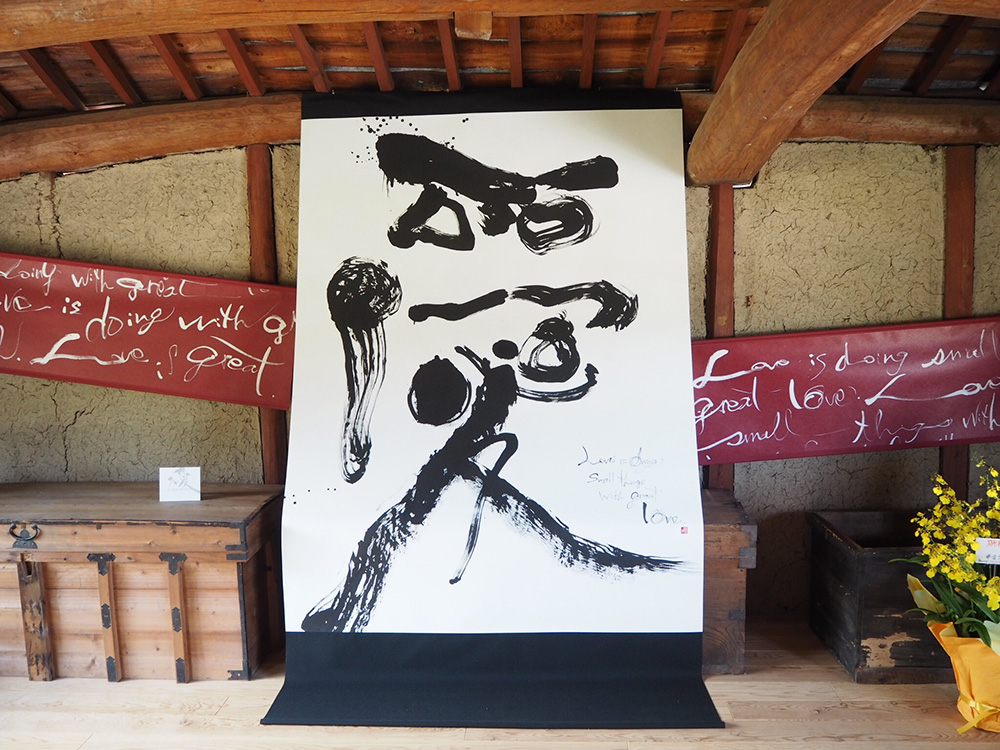 愛
Love is doing
small things
with great
love.
doing with great
love is doing with gr
Love is great
Love is doing small
great love. Love
small things with